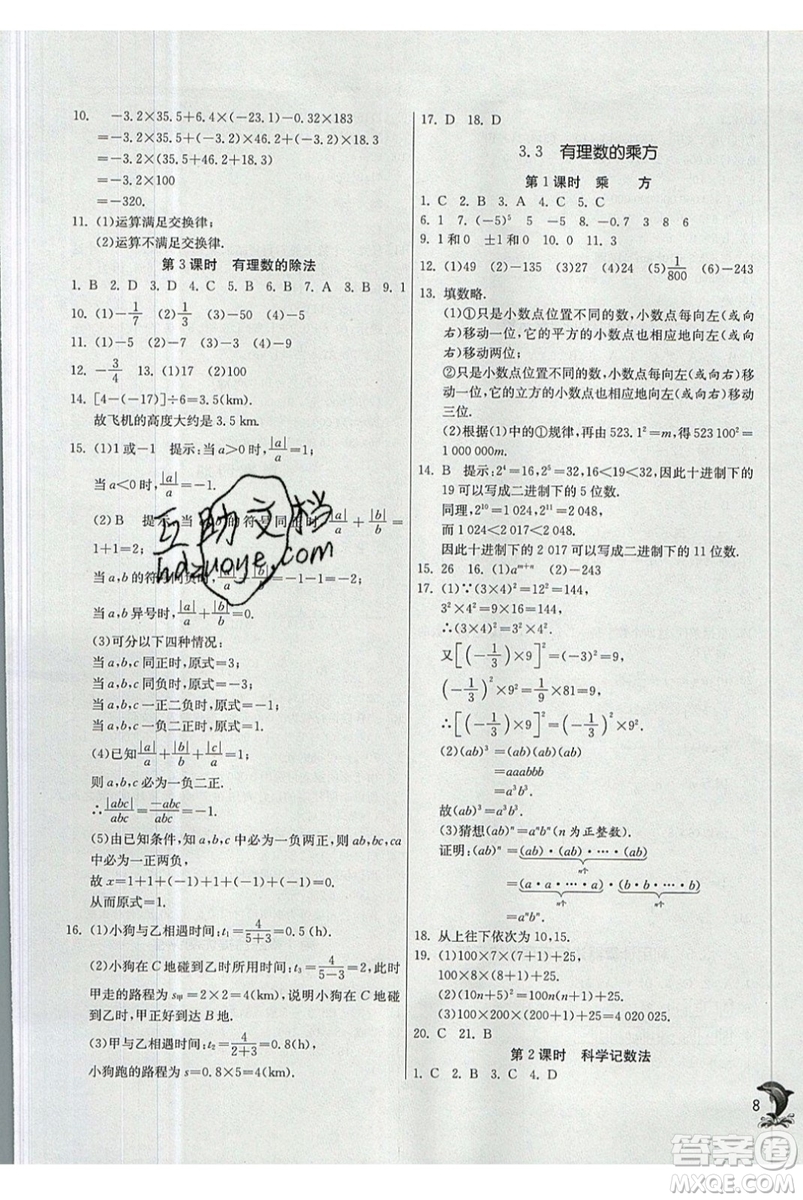 10. －3.2×35.5＋6.4×(－23.1)－0.32×183
＝－3.2×35.5＋(－3.2)×46.2＋(－3.2)×18.3
＝－3.2×(35.5＋46.2＋18.3)
＝－3.2×100
＝－320.
11. (1)运算满足交换律.
(2)运算不满足交换律.
第 3 课时 有理数的除法
1. B 2. D 3. D 4. C 5. B 6. B 7. A 8. B 9. 1
10. (1)－1/7 (2)1/3 (3)－9 (4)0
11. (1)－5 (2)－250
12. －3/4 13. (1)25 (2)100
14. [4－(－17)]÷6＝3.5(km).
故飞机的高度大约是 3.5 km.
15. (1)1或－1 提示：当 a＞0 时,|a|/a＝1；
当 a＜0 时,|a|/a＝－1.
(2) B 提示：当 a,b 的符号同正时,|a|/a＋|b|/b＝
1＋1＝2；
当 a,b 的符号同负时,＝－1－1＝－2；
当 a,b 异号时,|a|/a＋|b|/b＝0.
(3)可分以下四种情况：
当 a,b,c 同正时,原式＝3；
当 a,b,c 同负时,原式＝－3；
当 a,b,c 一正二负时,原式＝－1；
当 a,b,c 一负二正时,原式＝1.
(4)已知|a|/a＋|b|/b＋|c|/c＝1,
则 a,b,c 必为一负二正.
∴|abc|/abc＝－abc/abc＝－1.
(5)由已知条件,知 a,b,c 中必为一负两正,则 ab,bc,ca
中必为一正两负,
故 x＝1＋1＋(－1)＋1＋(－1)＋(－1)＝0.
从而原式＝1.
16. (1)小狗与乙相遇时间：t₁＝4/(5＋3)＝0.5(h).
(2)小狗在 C 地碰到乙时所用时间：t₃＝4/(5－3)＝2(h),
甲走的路程为 s甲＝2×2＝4(km),说明小狗在 C 地碰
到乙时,甲正好到达 B 地.
(3)甲与乙相遇时间：t₂＝4/(2＋3)＝0.8(h),
小狗跑的路程为 s＝0.8×5＝4(km).
17. D 18. D
3.3 有理数的乘方
第 1 课时 乘 方
1. C 2. B 3. A 4. C 5. C
6. 1 7. (－5)⁵ 5 －5 8. －0.7 3 8 6
9. 1和0 ±1和0 10. 0 11. 3
12. (1)49 (2)－135 (3)27 (4)20 (5)1/800 (6)－243
13. 填数略.
(1)①只是小数点位置不同的数,小数点每向左(或向
右)移动一位,它的平方的小数点也相应地向左(或向
右)移动两位；
②只是小数点位置不同的数,小数点每向左(或向右)
移动一位,它的立方的小数点也相应地向左(或向右)移动
三位.
(2)根据(1)中的①规律,再由 523.1²＝m,得 523 100²＝
1 000 000m.
14. B 提示：2⁴＝16,2⁵＝32,16＜19＜32,因此十进制下的
19 可以写成二进制下的 5 位数.
同理,2¹⁰＝1 024,2¹¹＝2 048,
而 1 024＜2 017＜2 048.
因此十进制下的 2 017 可以写成二进制下的 11 位数.
15. 26 16. (1)aᵐ⁺ⁿ (2)－243
17. (1)∵(3×4)²＝12²＝144,
3²×4²＝9×16＝144,
∴(3×4)²＝3²×4².
又[(－1/3)×9]²＝(－3)²＝9,
(－1/3)²×9²＝1/9×81＝9,
∴[(－1/3)×9]²＝(－1/3)²×9².
(2)(ab)³＝(ab)(ab)(ab)
＝aaabbb
＝a³b³.
故(ab)³＝a³b³.
(3)猜想(ab)ⁿ＝aⁿbⁿ(n 为正整数).
证明：(ab)ⁿ＝(ab)·(ab)·…·(ab)
n个
＝(a·a·…·a)(b·b·…·b)
n个 n个
＝aⁿbⁿ.
18. 从上往下依次为 10,15.
19. (1)100×7×(7＋1)＋25,
100×8×(8＋1)＋25.
(2)(10n＋5)²＝100n(n＋1)＋25.
(3)100×200×201＋25＝4 020 025.
20. C 21. B
第 2 课时 科学记数法
1. C 2. B 3. C 4. D
8
互助文档
hdzuoye.com
答案圈
MXQE.COM